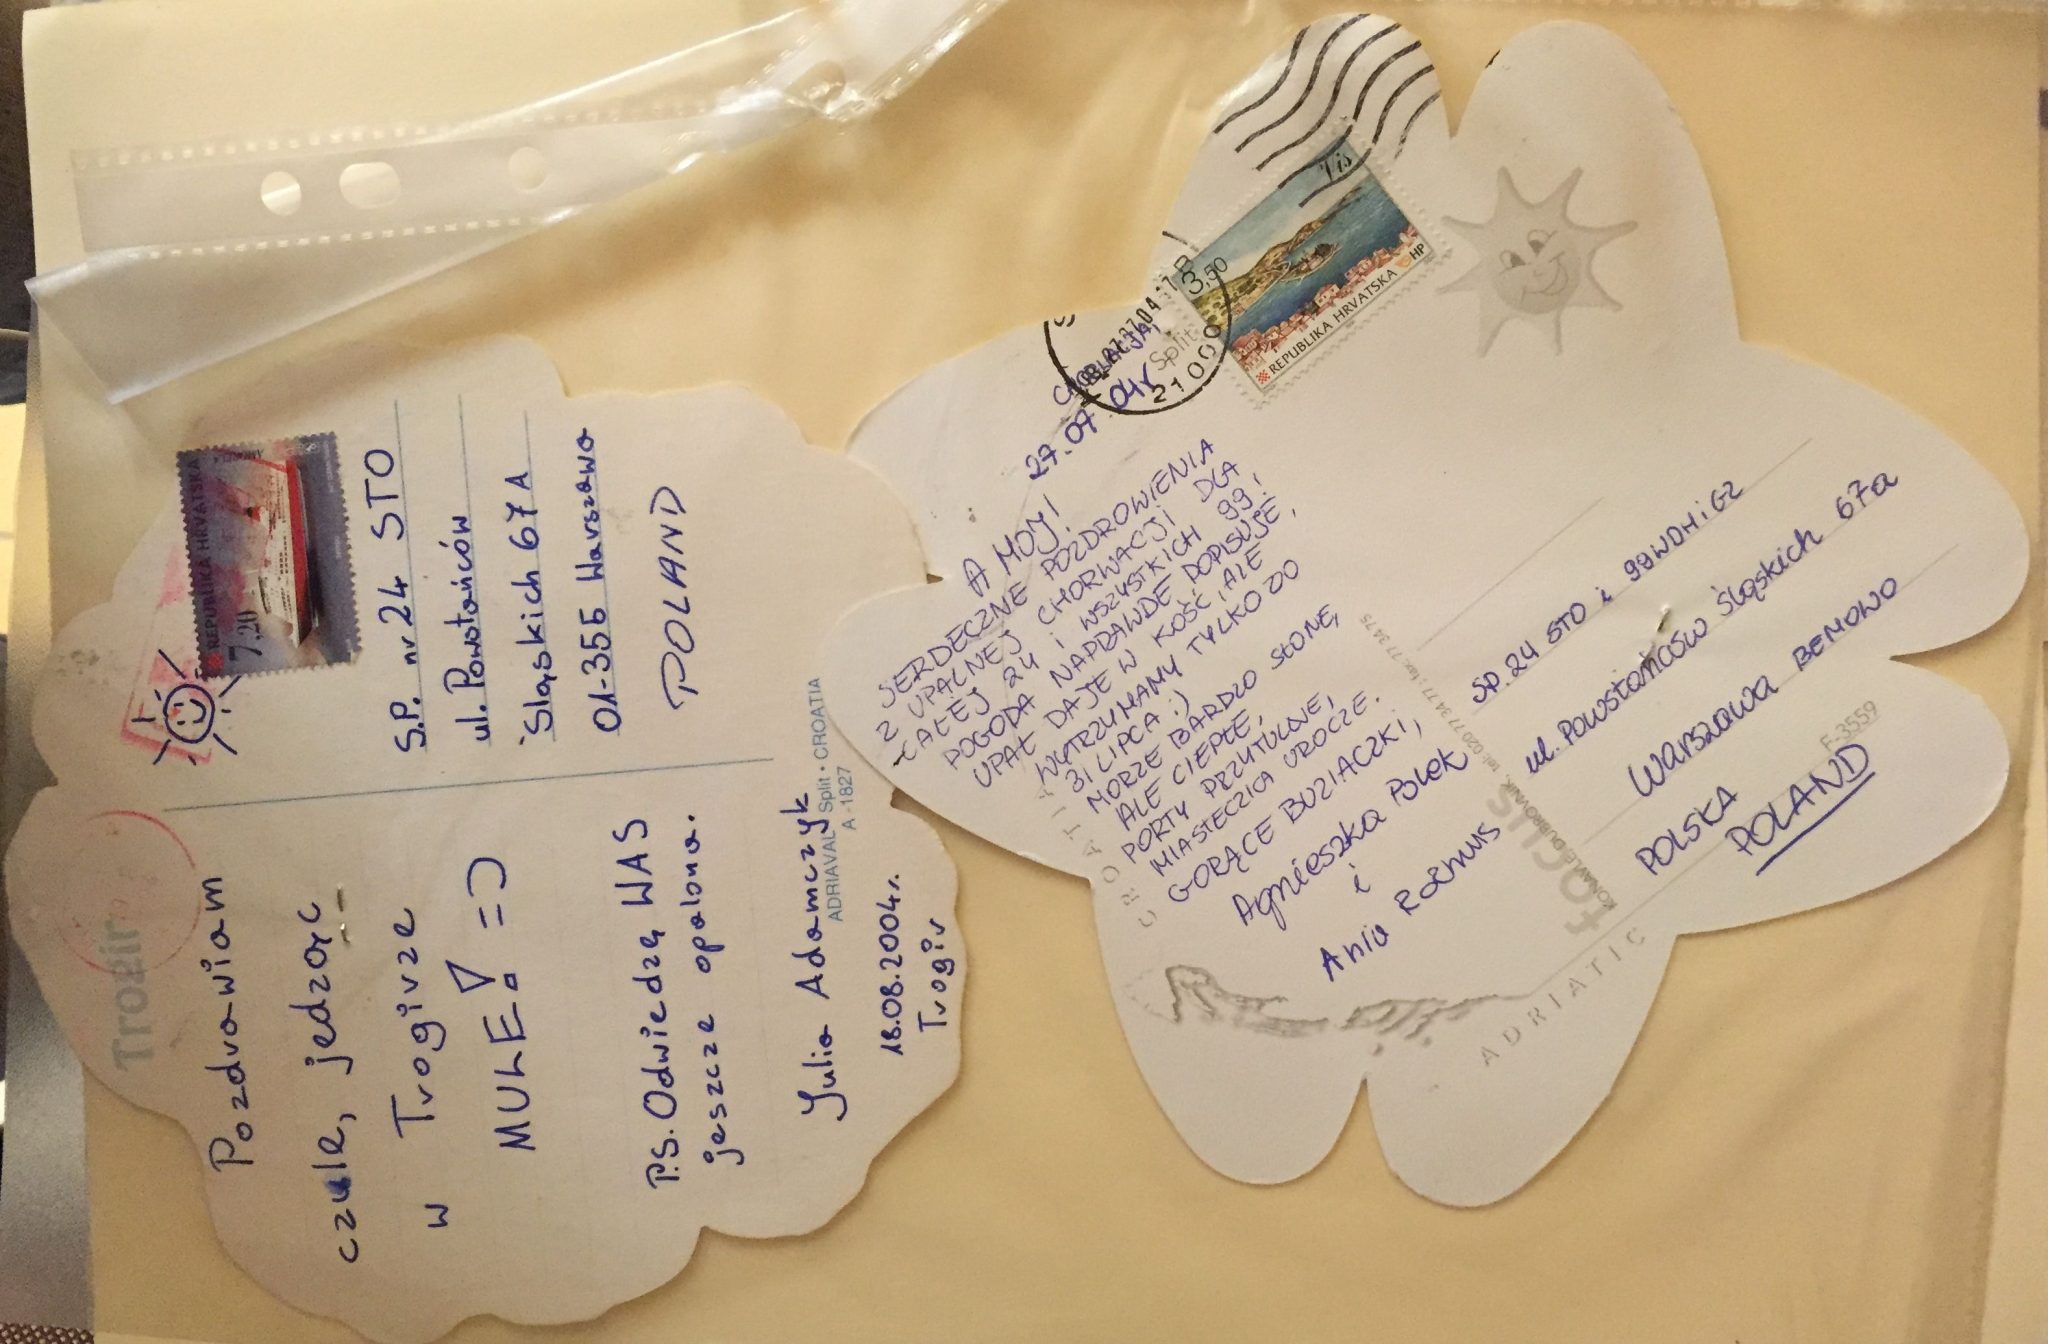 Trogir
Pozdrawiam
czule, jedząc
w Trogirze
MULE! =)
P.S. Odwiedzę WAS
jeszcze opalona.
Julia Adamczyk
18.08.2004r.
Trogir
REPUBLIKA HRVATSKA
7,20
S.P. nr 24 STO
ul. Powstańców
Śląskich 67A
01-355 Warszawa
POLAND
ADRIAVAL Split • CROATIA
A-1827
CHORWACJA,
27.07.04r
Split
21000
3,50
Vis
REPUBLIKA HRVATSKA
HP
AHOJ!
SERDECZNE POZDROWIENIA
Z UPALNEJ CHORWACJI DLA
CAŁEJ 24 I WSZYSTKICH 99!
POGODA NAPRAWDĘ DOPISUJE,
UPAŁ DAJE W KOŚĆ, ALE
WYTRZYMAMY TYLKO DO
31 LIPCA :)
MORZE BARDZO SŁONE,
ALE CIEPŁE,
PORTY PRZYTULNE,
MIASTECZKA UROCZE.
GORĄCE BUZIACZKI,
Agnieszka
i
Ania
SP.24 STO i 99WDHiGZ
ul. Powstańców Śląskich 67a
Warszawa BEMOWO
POLSKA
POLAND
CROATIA
focus
KONAVLE, DUBROVNIK, tel: 020 77 34 77; fax: 77 34 75
F-3559
ADRIATIC